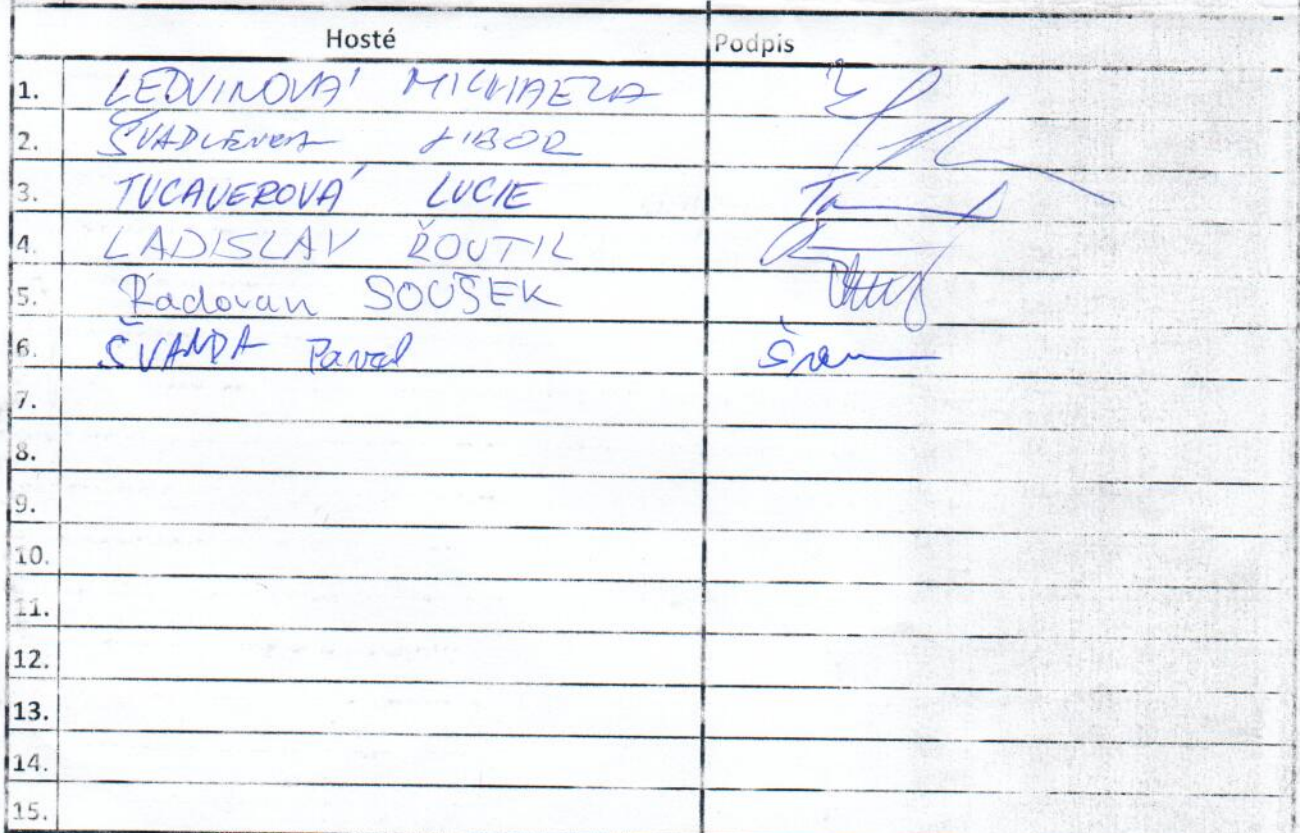 Hosté Podpis
1. LEDVINOVÁ MICHAELA
2. ŠVADLENKA LIBOR
3. TUCAUEROVÁ LUCIE
4. LADISLAV ŘOUTIL
5. Radovan SOUŠEK
6. ŠVANDA Pavel
7.
8.
9.
10.
11.
12.
13.
14.
15.